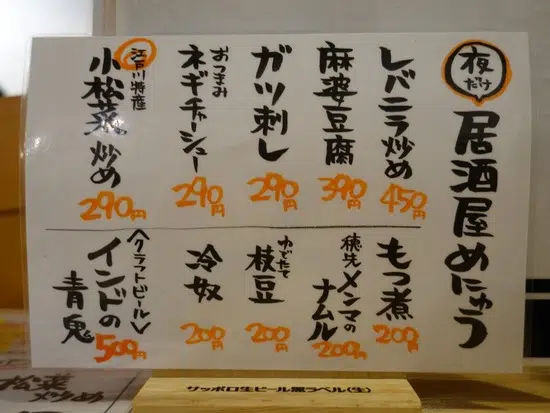 夜だけ
居酒屋めにゅう
レバニラ炒め
450円
麻婆豆腐
390円
ガツ刺し
290円
おつまみ
ネギチャーシュー
290円
江戸川特産
小松菜炒め
290円
もつ煮
200円
穂先メンマの
ナムル
200円
ゆでたて
枝豆
200円
冷奴
200円
<クラフトビール>
インドの
青鬼
500円
サッポロ生ビール黒ラベル(生)
松菜炒め